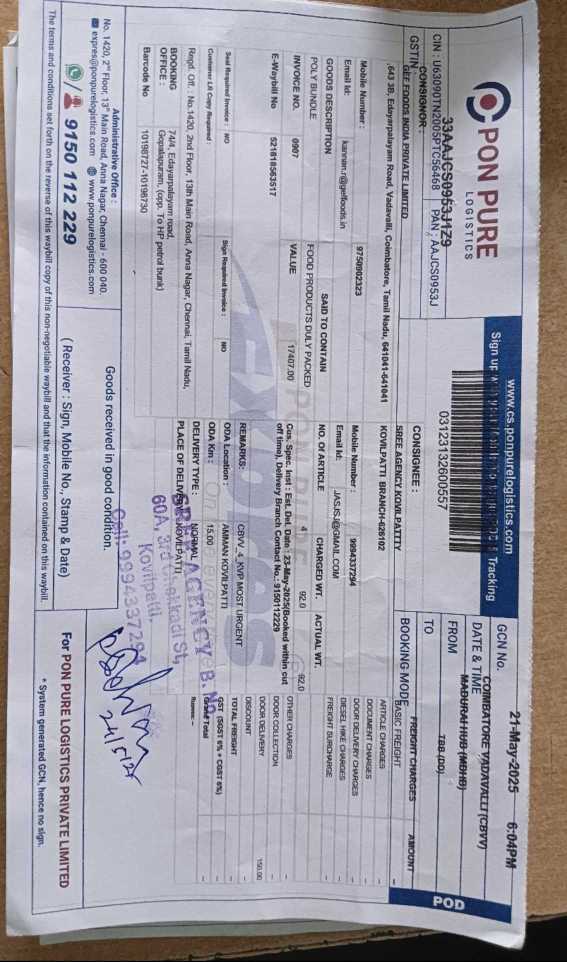 PON PURE
LOGISTICS
www.cs.ponpurelogistics.com
Tracking
03123132600557
POD
GCN No.
DATE & TIME
21-May-2025 6:04PM
FROM
COIMBATORE VADAVALLI (CBVV)
TO
MADURAI HUB (MDHB)
BOOKING MODE
TBB (DD)
CIN : U63090TN2005PTC56468 PAN : AAJCS0953J
GSTIN
33AAJCS0953J1Z9
CONSIGNOR :
GEF FOODS INDIA PRIVATE LIMITED
,643 3B, Edayarpalayam Road, Vadavalli, Coimbatore, Tamil Nadu, 641041-641041
Mobile Number :
9750902323
Email Id:
kannan.r@geffoods.in
CONSIGNEE :
SREE AGENCY KOVILPATTTY
KOVILPATTI BRANCH-628102
Mobile Number :
9994337294
Email Id:
JASJSJ@GMAIL.COM
GOODS DESCRIPTION
SAID TO CONTAIN
NO. Of ARTICLE
CHARGED WT.
ACTUAL WT.
POLY BUNDLE
FOOD PRODUCTS DULY PACKED
4
92.0
92.0
INVOICE NO.
0907
VALUE
17407.00
E-Waybill No
521818563517
Cus. Spec. Inst : Est. Del. Date : 23-May-2025(Booked within cut
off time), Delivery Branch Contact No.: 9150112229
REMARKS:
CBVV_4_KVP MOST URGENT
Seal Required Invoice : NO
Sign Required Invoice : NO
ODA Location :
AMMAN KOVILPATTI
Container LR Copy Required :
ODA Km :
15.00
Regd. Off. : No.1420, 2nd Floor, 13th Main Road, Anna Nagar, Chennai, Tamil Nadu,
DELIVERY TYPE :
NORMAL
BOOKING
OFFICE :
74/4, Edayarpalayam road,
Gopalapuram, (opp. To HP petrol bunk)
PLACE OF DELIVERY :
KOVILPATTI
Barcode No
10198727-10198730
FREIGHT CHARGES
AMOUNT
BASIC FREIGHT
-
ARTICLE CHARGES
-
DOCUMENT CHARGES
-
DOOR DELIVERY CHARGES
-
DIESEL HIKE CHARGES
-
FREIGHT SURCHARGE
-
OTHER CHARGES
-
DOOR COLLECTION
-
DOOR DELIVERY
150.00
DISCOUNT
-
TOTAL FREIGHT
-
GST (SGST 6% + CGST 6%)
-
Grand Total
-
AGENCY
Kovilpatti.
Cell: 9994337294
Administrative Office :
No. 1420, 2nd Floor, 13th Main Road, Anna Nagar, Chennai - 600 040.
expres@ponpurelogistics.com www.ponpurelogistics.com
9150 112 229
Goods received in good condition.
( Receiver : Sign, Mobile No., Stamp & Date)
For PON PURE LOGISTICS PRIVATE LIMITED
* System generated GCN, hence no sign.
The terms and conditions set forth on the reverse of this waybill copy of this non-negotiable waybill and that the information contained on this waybill.